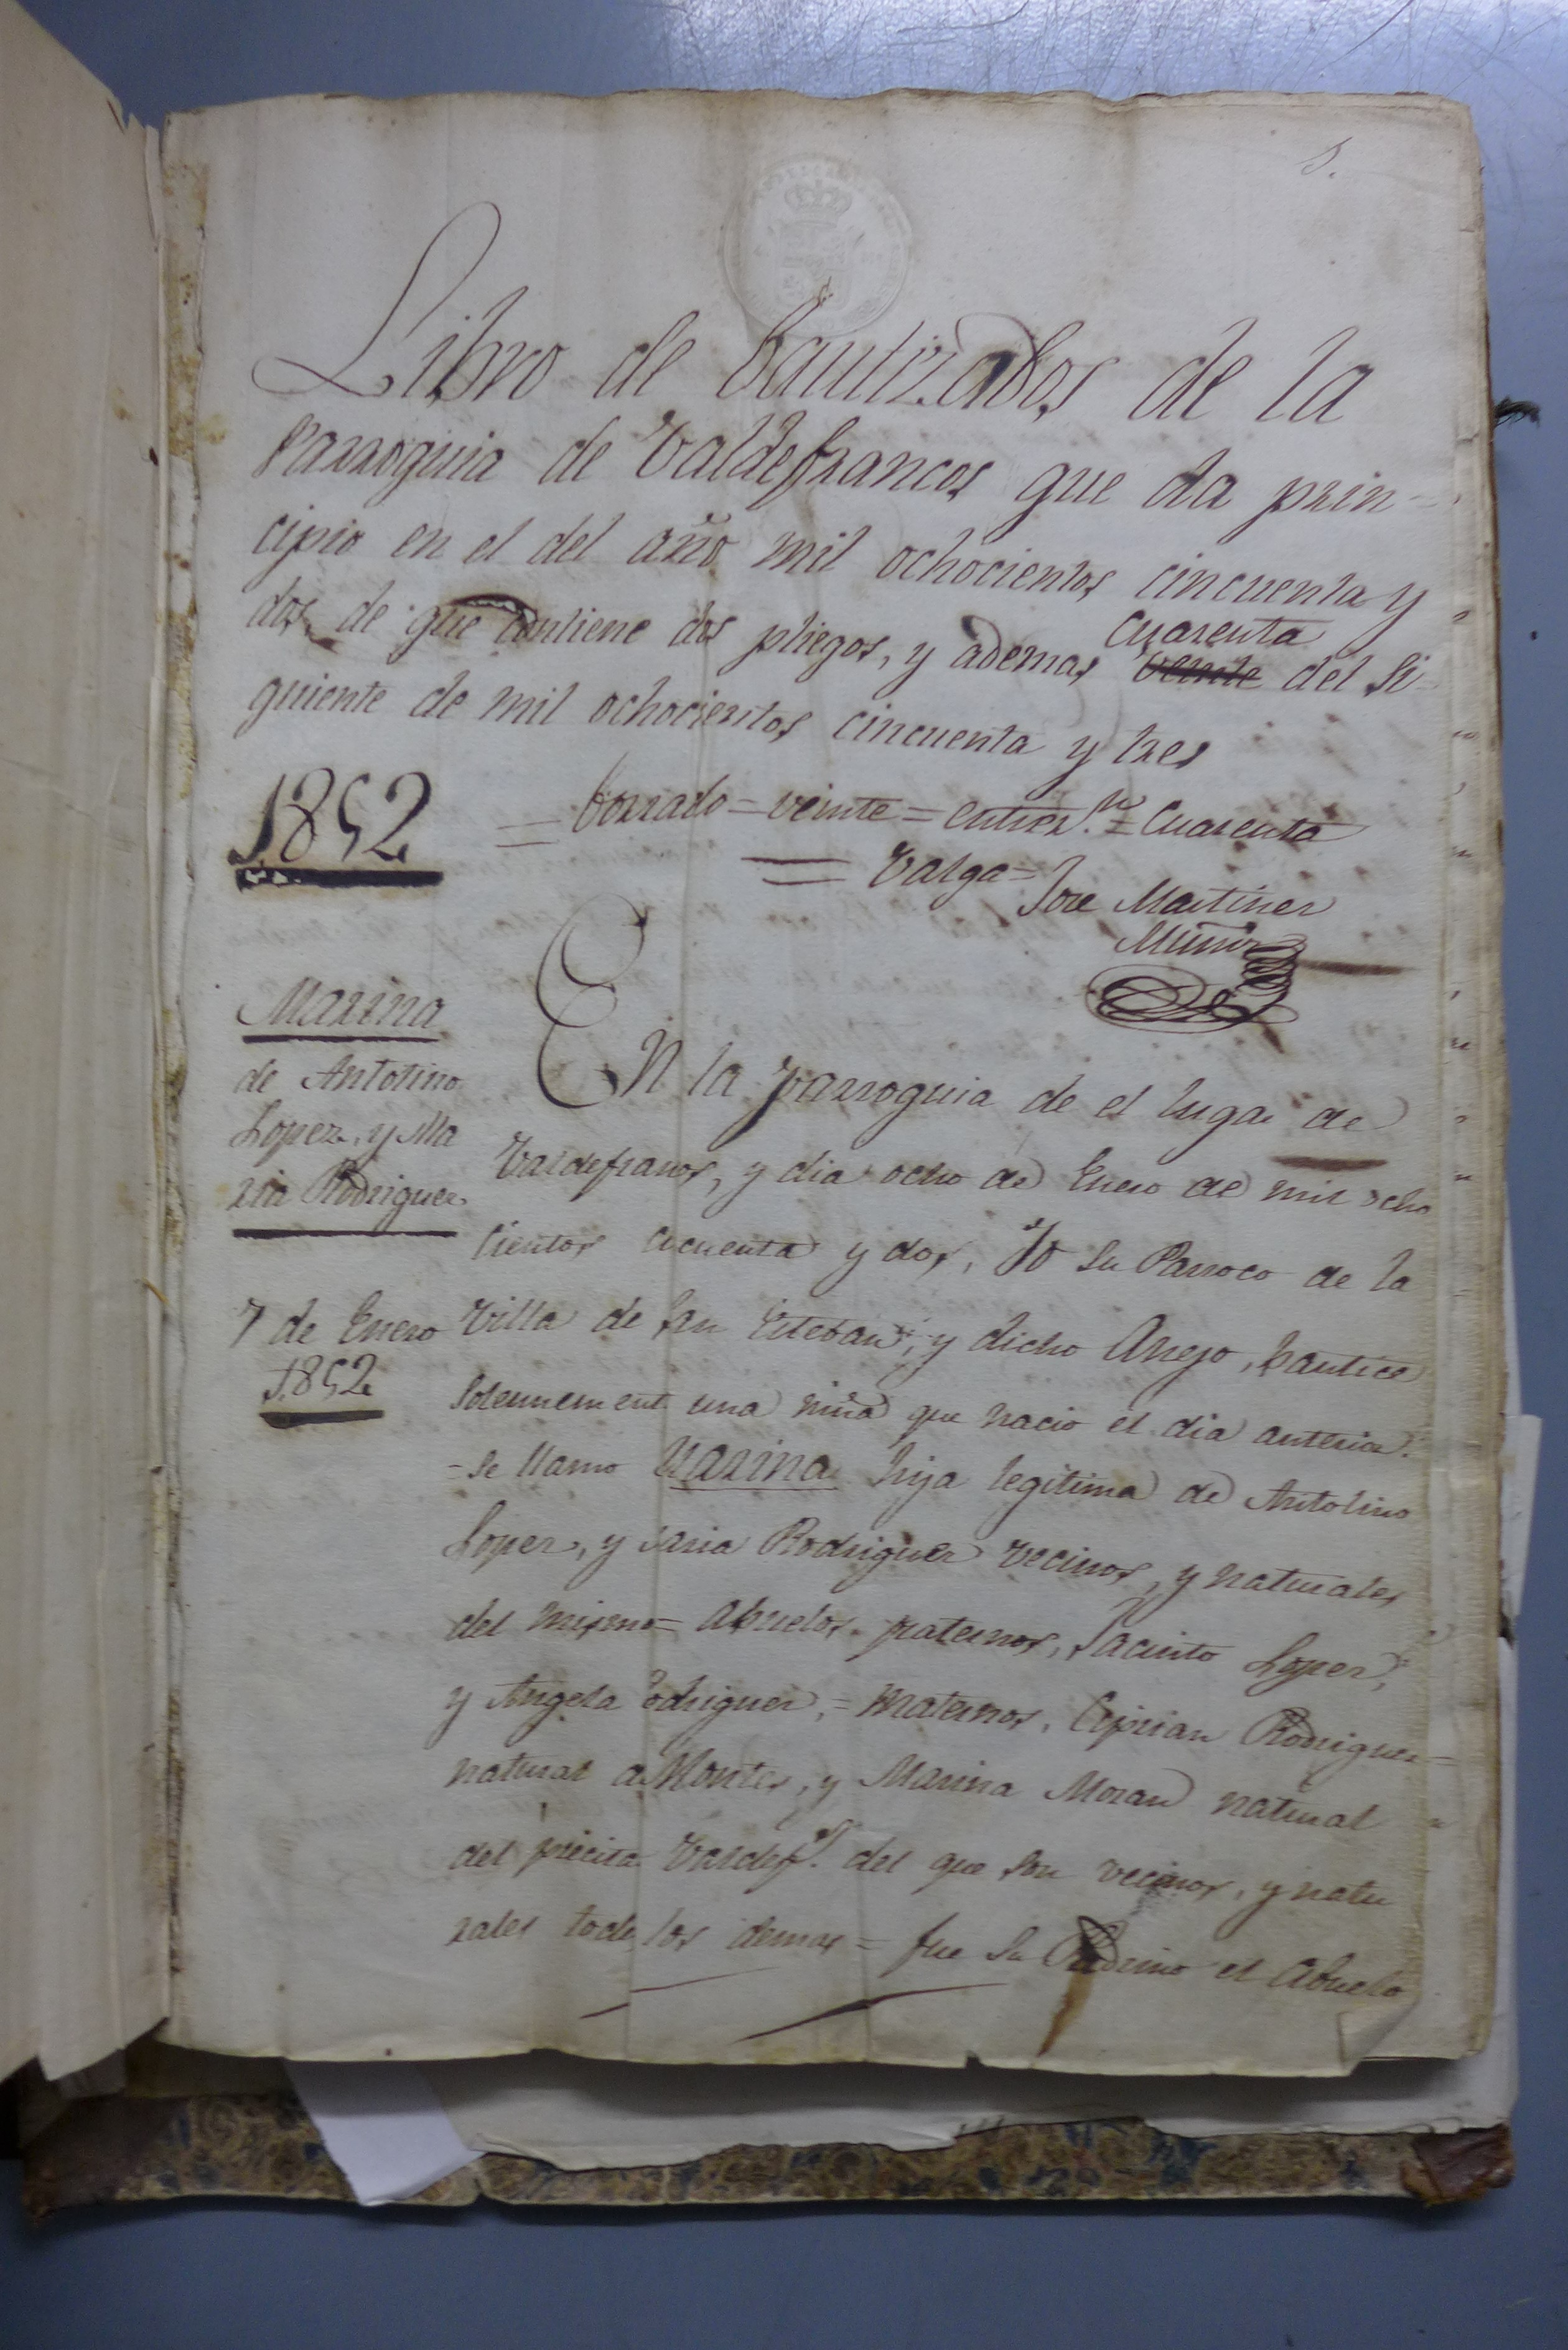 1.
Libro de Bautizados de la
Parroquia de Valdefrancos que da prin-
cipio en el del año mil ochocientos cincuenta y
dos de que contiene dos pliegos, y ademas veinte del si-
Cuarenta
guiente de mil ochocientos cincuenta y tres
= borrado = veinte = entrer.n = Cuarenta
= Valga =
Jose Martinez
Muñiz
1852
Marina
de Antolino
Lopez, y Ma
ria Rodriguez
7 de Enero
1852
En la parroquia de el lugar de
Valdefrancos, y dia ocho de Enero de mil ocho
cientos cicuenta y dos, Yo su Parroco de la
Villa de San Esteban, y dicho Anejo, bautice
solemnement una niña que nacio el dia anterior.
- se llamo Marina hija legitima de Antolino
Lopez, y Maria Rodriguez vecinos, y naturales
del mismo = Abuelos paternos, Jacinto Lopez,
y Angela Rodriguez, = maternos, Ciprian Rodriguez =
natural de Montes, y Marina Moran natural
del precita Valdef.s del que son vecinos, y natu
rales todos los demas = fue su Padrino el Abuelo